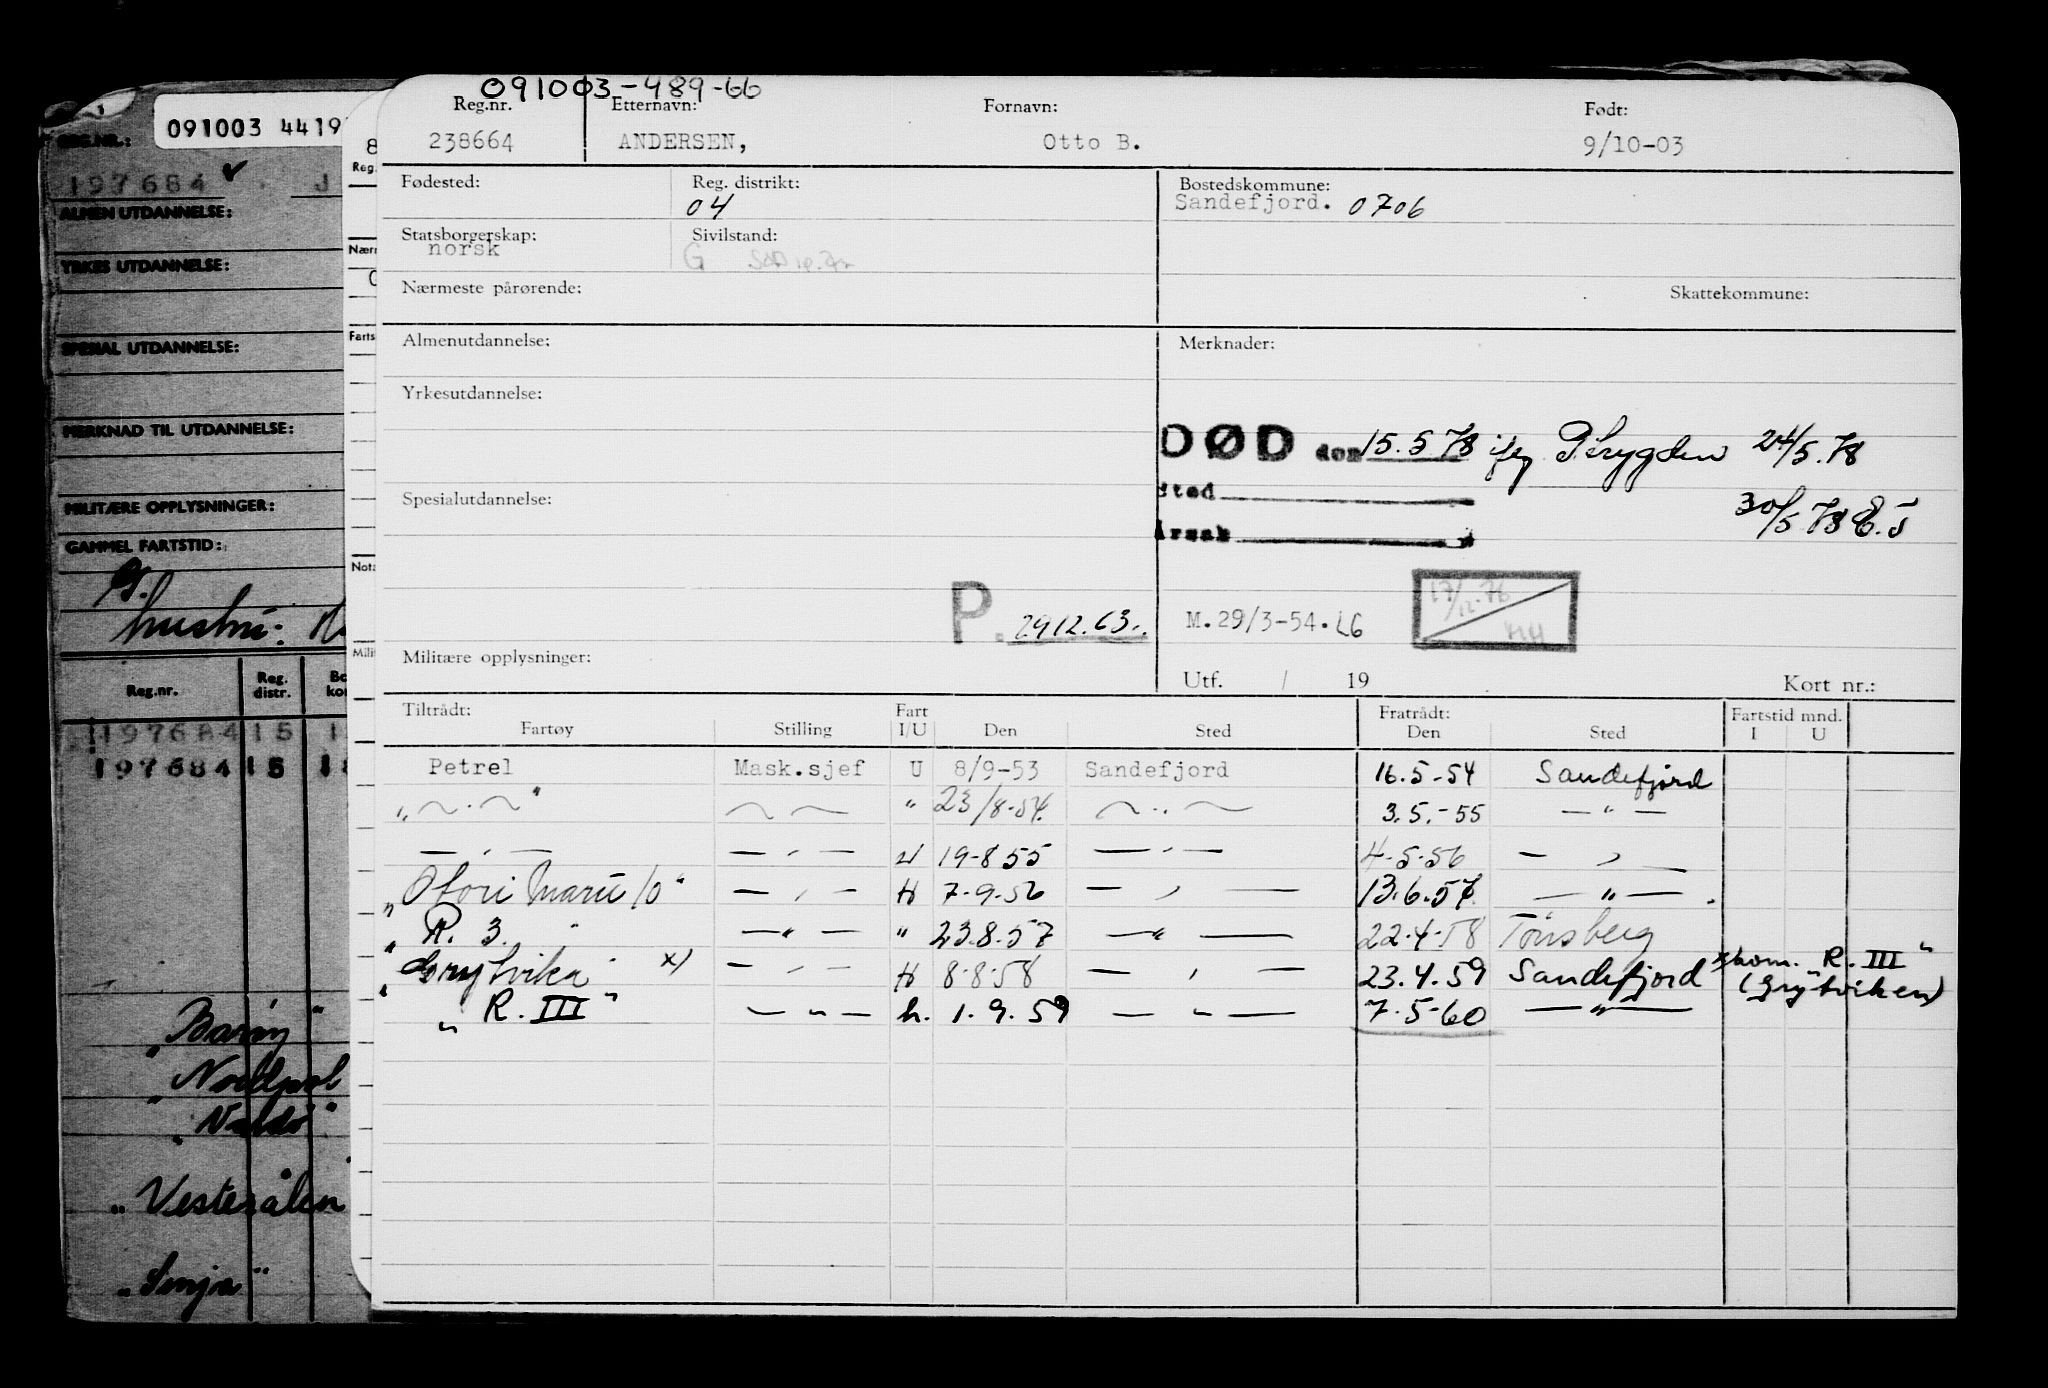 091003-489-66
Reg.nr. Etternavn: Fornavn: Født:
238664 ANDERSEN, Otto B. 9/10-03
Fødested: Reg. distrikt: Bostedskommune:
04 Sandefjord. 0706
Statsborgerskap: Sivilstand:
norsk G
Nærmeste pårørende: Skattekommune:
Almenutdannelse: Merknader:
Yrkesutdannelse:
DØD den 15.5.78 24/5.78
Spesialutdannelse: Sted
30/5 78
Årsak
P. 29.12.63. M.29/3-54.LG 17/12-76
Militære opplysninger:
Utf. / 19 Kort nr.:
Tiltrådt: Fart Fratrådt: Fartstid mnd.
Fartøy Stilling I/U Den Sted Den Sted I U
Petrel Mask.sjef U 8/9-53 Sandefjord 16.5-54 Sandefjord
„ ~ · ~ " ~ ~ " 23/8-54. ~ .. ~ 3.5.-55 — " —
— " — — " — U 19-8 55 — " — 4-5-56 — " —
— " — H 7-9-56 — " — 13.6.57 — " —
„ R. 3. " — " — " 23.8.57 — " — 22.4-58 Tönsberg
„ Grytvika " x) — " — H 8-8-58 — " — 23.4.59 Sandefjord x) kom. R. III "
(Grytviken)
„ R. III " — " — h. 1.9.59 — " — 7-5-60 — " —
091003 4419
REG.NR.:
197684 J
ALMEN UTDANNELSE:
YRKES UTDANNELSE:
SPESIAL UTDANNELSE:
MERKNAD TIL UTDANNELSE:
MILITÆRE OPPLYSNINGER:
GAMMEL FARTSTID:
G.
hustru:
Reg.nr. Reg. distr. Bo kom
197684 15 1
197684 15 18
„Barøy"
„Nordpol
„Vesterålen
„Senja"
8
Reg.
Nærm
Farts
Nota
Milit